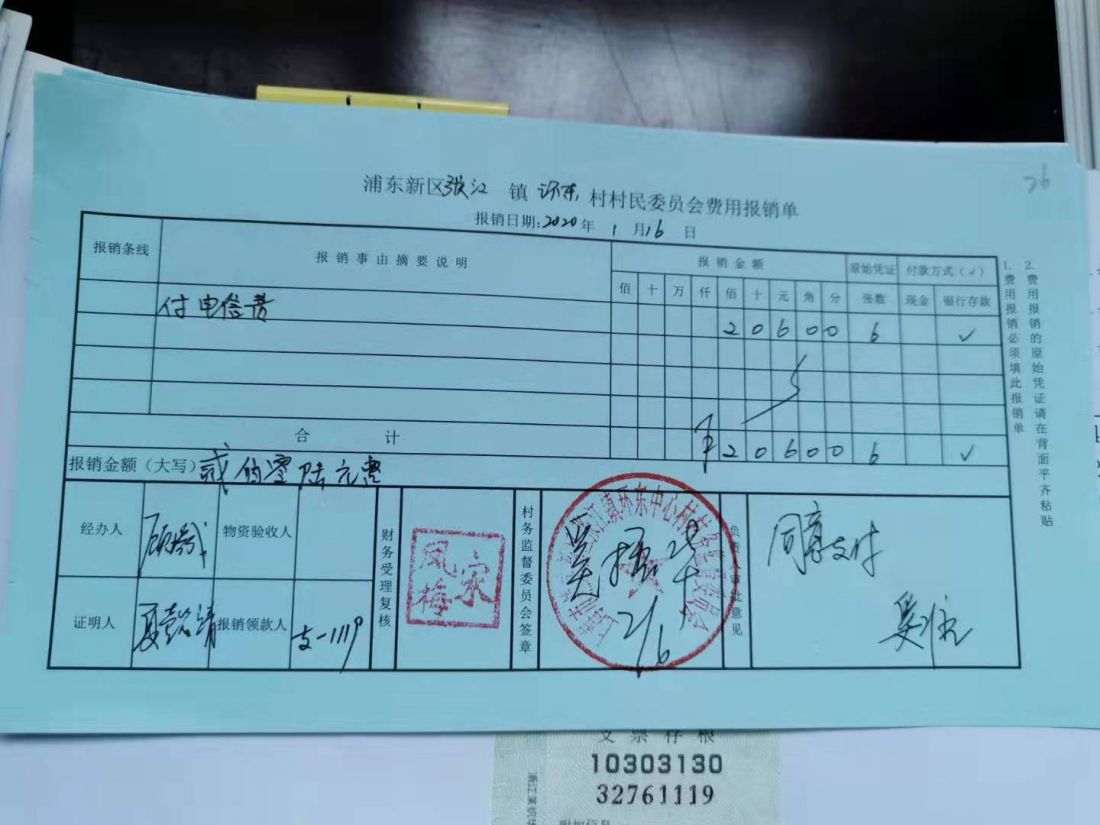 26
浦东新区张江 镇 环东 村村民委员会费用报销单
报销日期:2020年 1 月16 日
报销条线 报销事由摘要说明 报销金额 原始凭证 付款方式(√)
佰 十 万 仟 佰 十 元 角 分 张数 现金 银行存款
付电信费 2 0 6 0 0 6 √
合 计 ¥ 2 0 6 0 0 6 √
报销金额(大写) 贰佰零陆元整
经办人 物资验收人 财务受理复核 宋凤梅 村务监督委员会签章 负责人审批意见 同意支付
证明人 报销领款人 支-1119
1. 费用报销必须填此报销单
2. 费用报销的原始凭证请在背面平齐粘贴
支票存根
10303130
32761119
附加信息